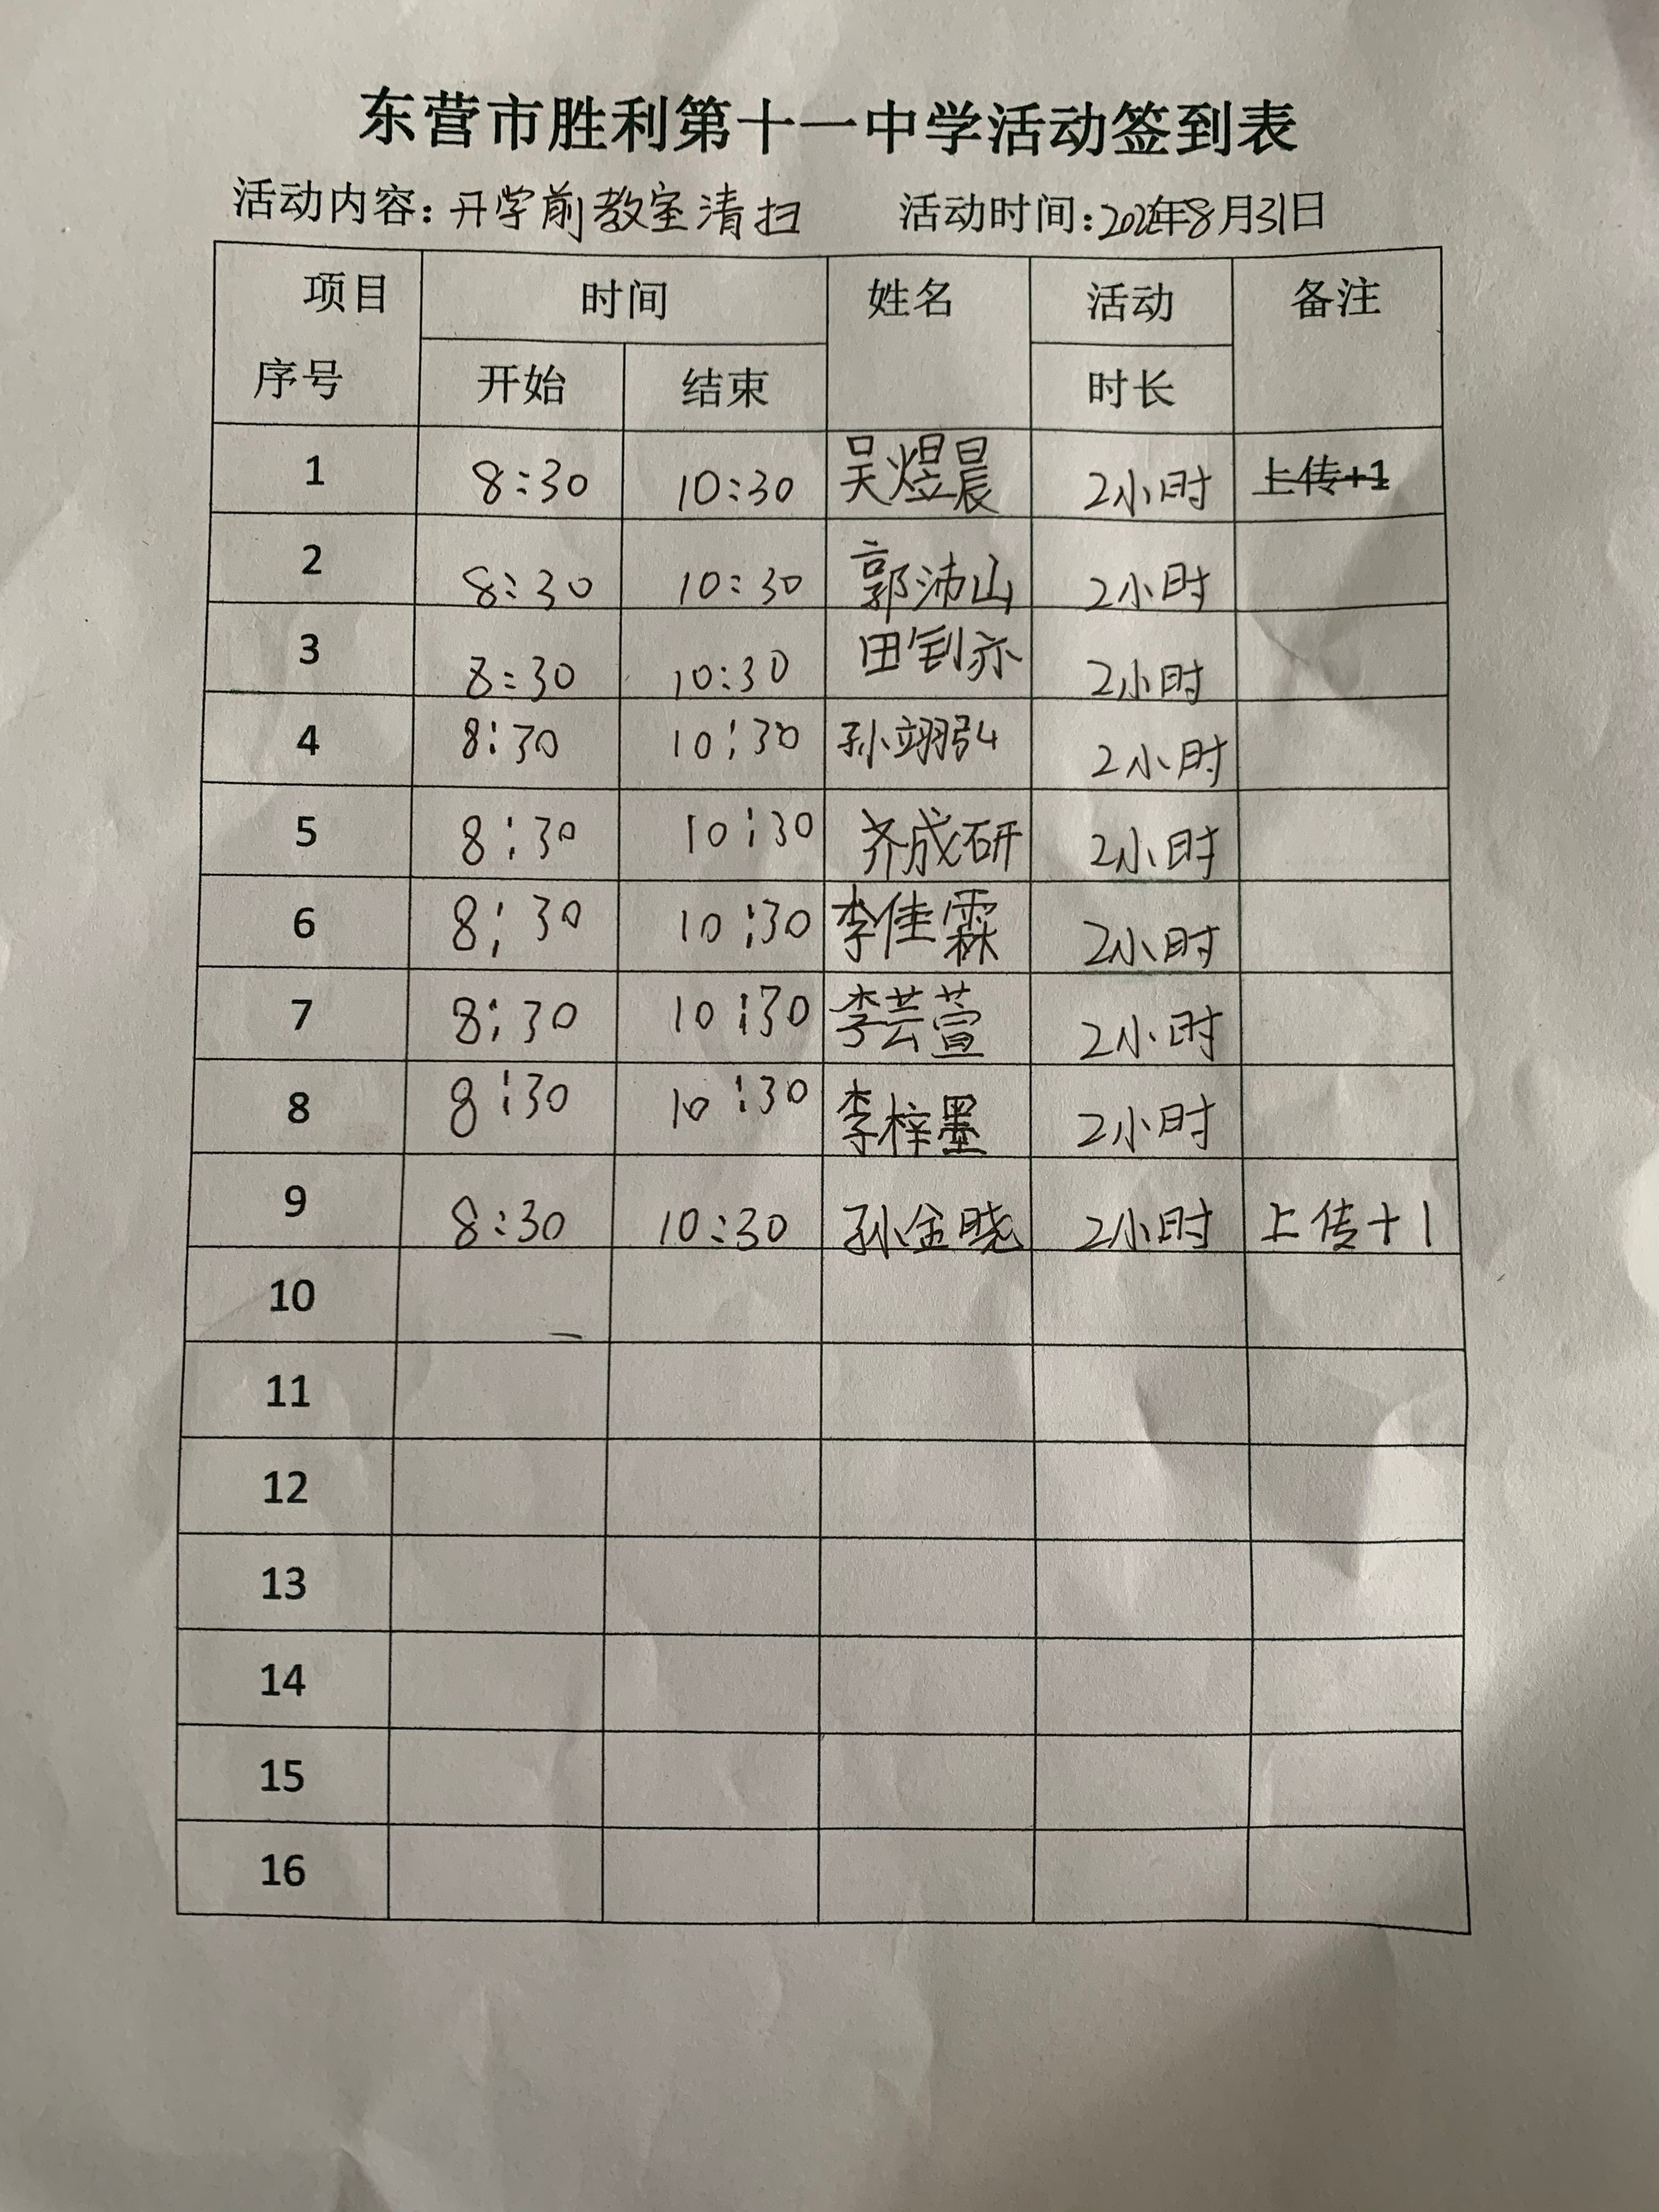 东营市胜利第十一中学活动签到表
活动内容：开学前教室清扫 活动时间：年8月31日
项目 时间 姓名 活动 备注
序号 开始 结束 时长
1 8:30 10:30 吴煜晨 2小时 上传+1
2 8:30 10:30 郭沛山 2小时
3 8:30 10:30 2小时
4 8:30 10:30 孙翊弘 2小时
5 8:30 10:30 齐成研 2小时
6 8:30 10:30 李佳霖 2小时
7 8:30 10:30 李芸萱 2小时
8 8:30 10:30 李梓墨 2小时
9 8:30 10:30 孙金晓 2小时 上传+1
10
11
12
13
14
15
16